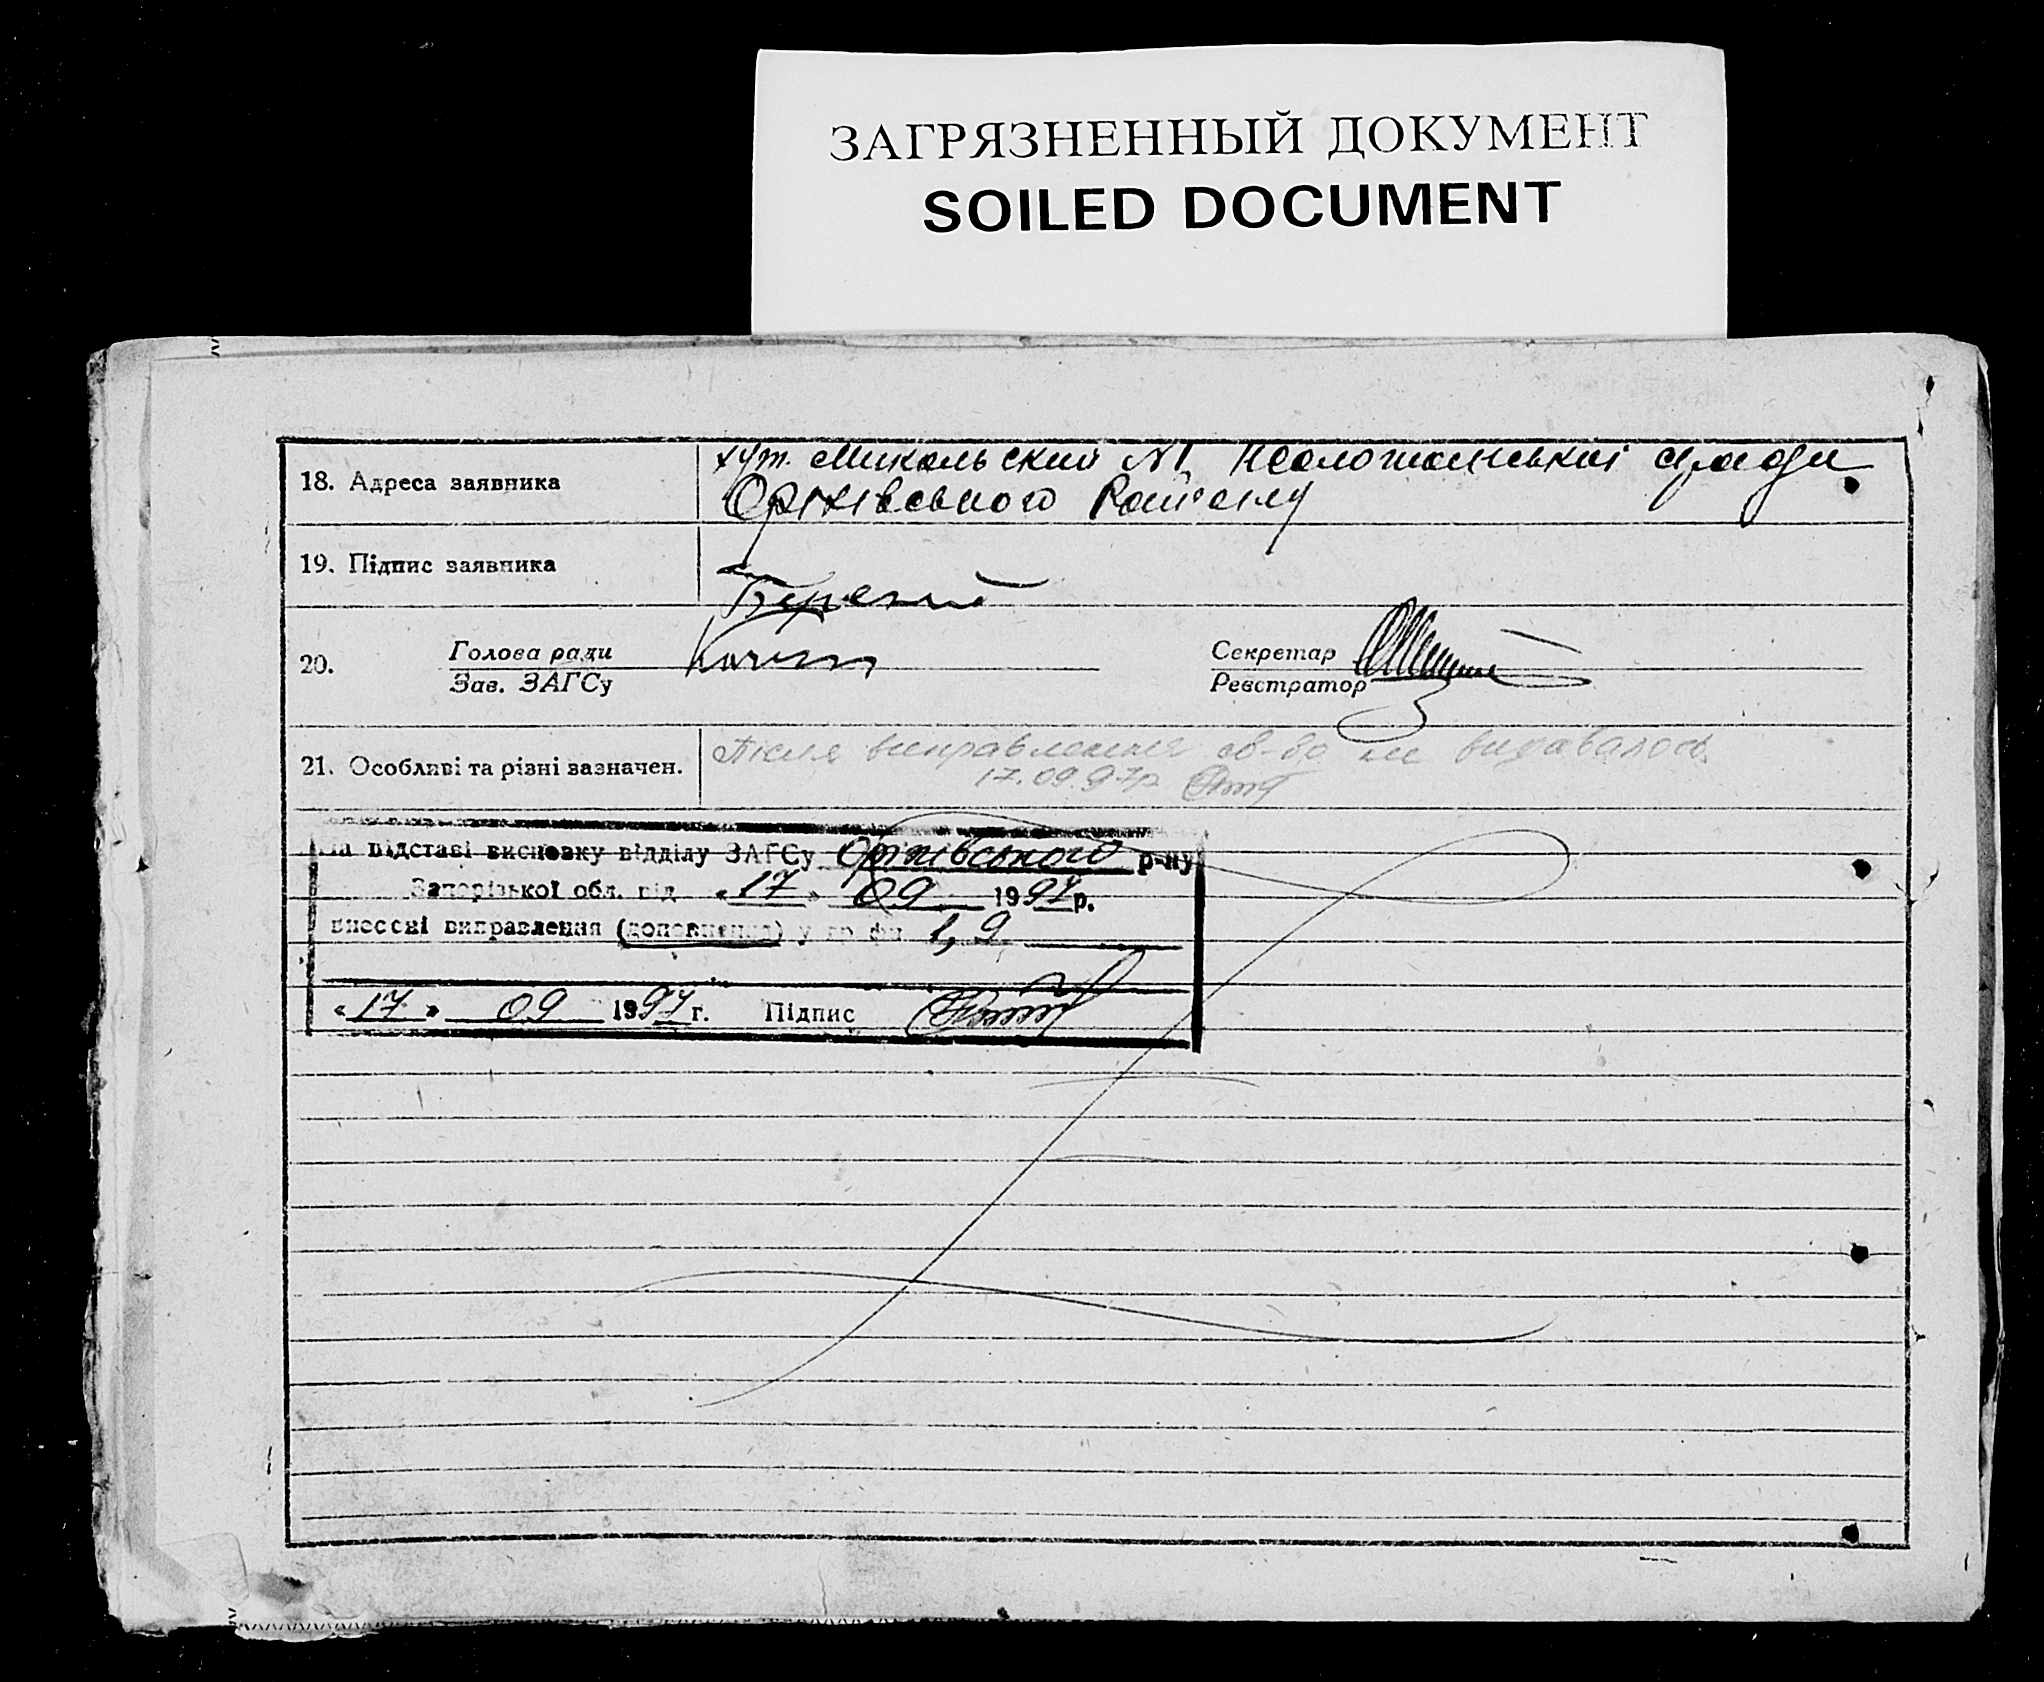 ЗАГРЯЗНЕННЫЙ ДОКУМЕНТ
SOILED DOCUMENT
18. Адреса заявника
хут. Микольский №1
Оріхівського Району
19. Підпис заявника
20. Голова ради
Зав. ЗАГСу
Секретар
Реєстратор
21. Особливі та різні зазначен.
Після виправлення св-во не видавалось
17.09.97р
На підставі висновку відділу ЗАГСу Оріхівського р-ну
Запорізької обл. від «17» 09 1997 р.
внесені виправлення (доповнення) у графи 1, 9
«17» 09 1997 г. Підпис